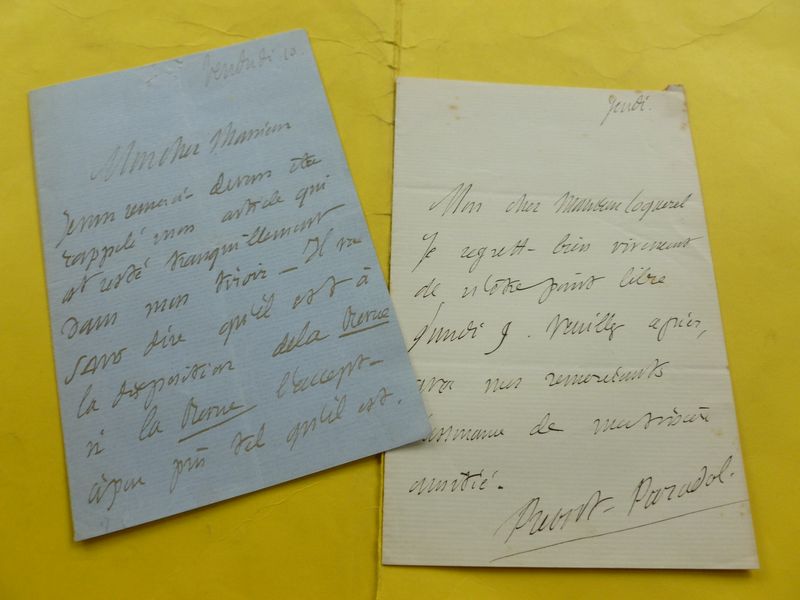 Vendredi 10.
Mon cher Monsieur
Je vous remercie d'avoir été
rappelé mon article qui
est resté tranquillement
dans mon tiroir — Il va
sans dire qu'il est à
la disposition de la Revue
si la Revue l'accepte
à peu près tel qu'il est.
Jeudi.
Mon cher Monsieur Coquerel
Je regrette bien vivement
de n'être point libre
lundi 9. Veuillez agréer,
avec mes remerciements
l'assurance de ma sincère
amitié.
Prevost-Paradol.